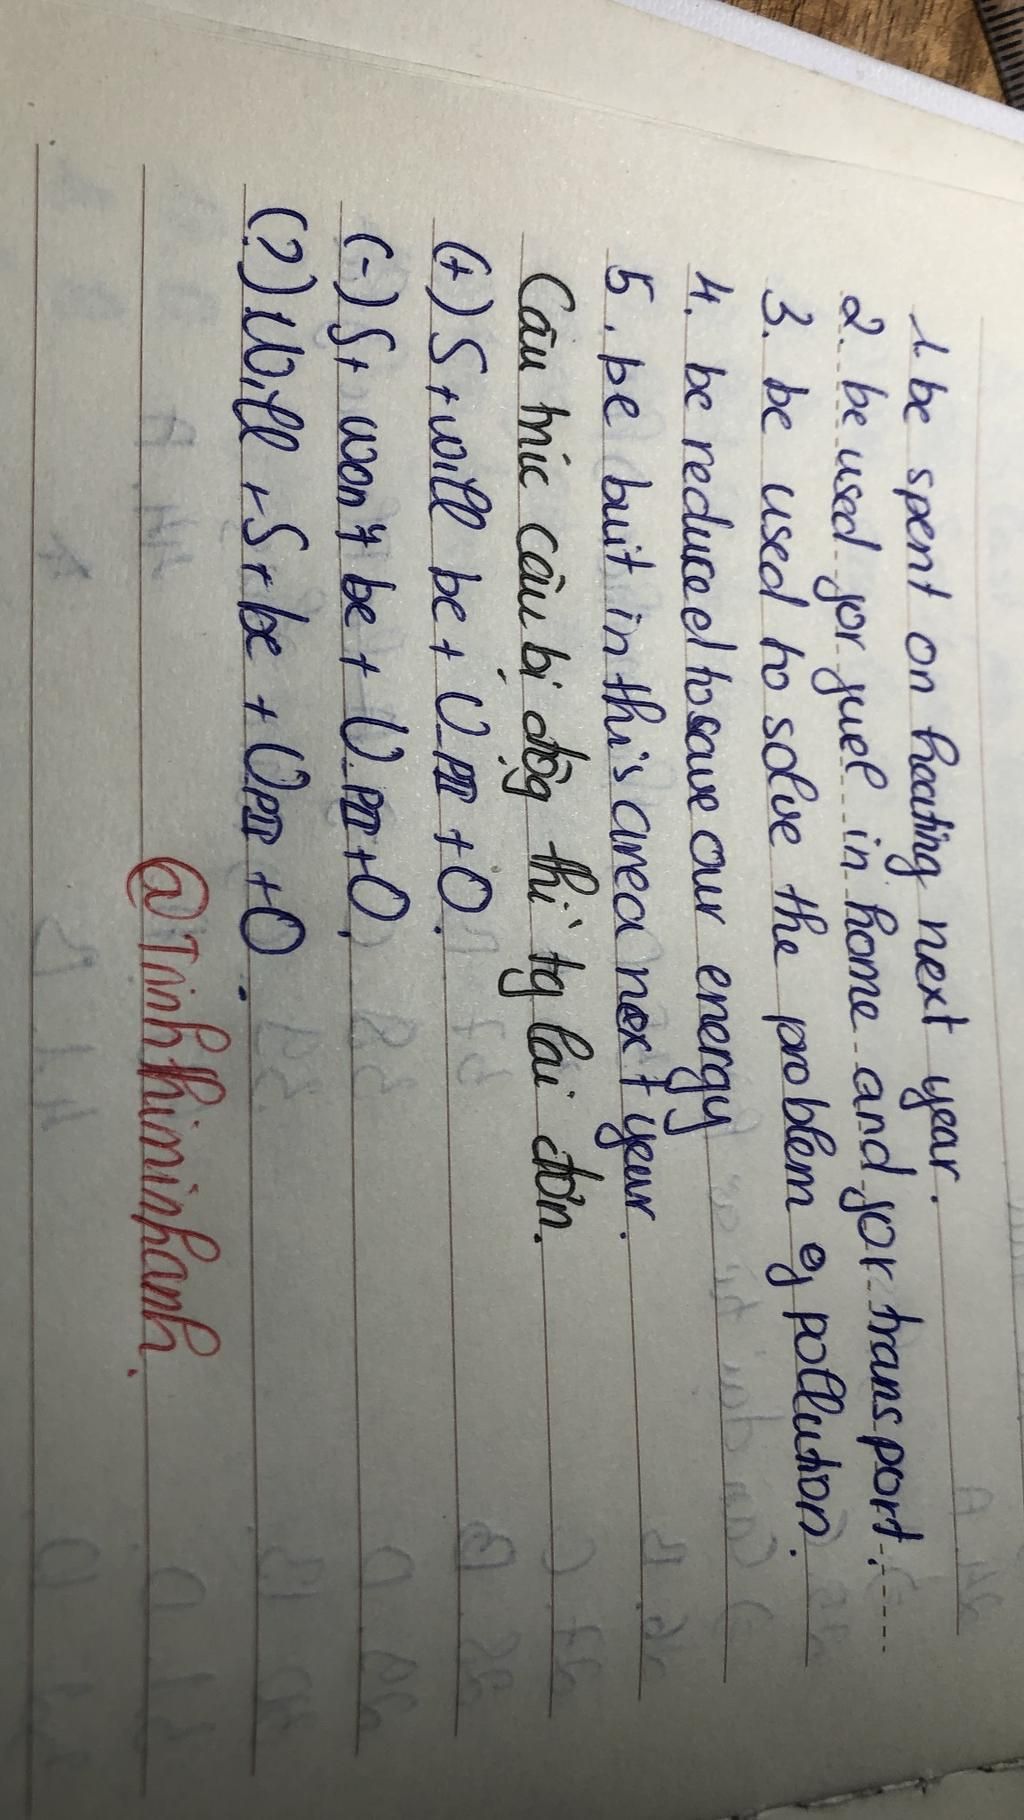 1. be spent on heating next year.
2. be used for fuel in home and for transport.
3. be used to solve the problem of pollution.
4. be reduced to save our energy
5. be buit in this area next year.
Cấu trúc câu bị độg thì tg lai đơn.
(+) S + will be + V_PII + O.
(-) S + won't be + V_PII + O.
(?) Will + S + be + V_PII + O.
@Trinhthiminhanh.